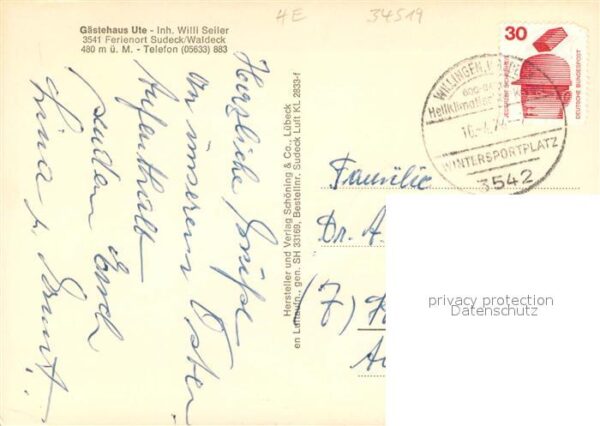 4E 34519
Gästehaus Ute - Inh. Willi Seiler
3541 Ferienort Sudeck/Waldeck
480 m ü. M. - Telefon (05633) 883
Herzliche Grüße
von unserem Oster
Aufenthalt
senden Euch
Hersteller und Verlag Schöning & Co., Lübeck
en Luftaufn., gen. SH 33169, Bestellnr. Sudeck Luft KL 2833-f
30
DEUTSCHE BUNDESPOST
WILLINGEN
Heilklimatischer
WINTERSPORTPLATZ
3542
Familie
Dr. A
(7)
privacy protection
Datenschutz